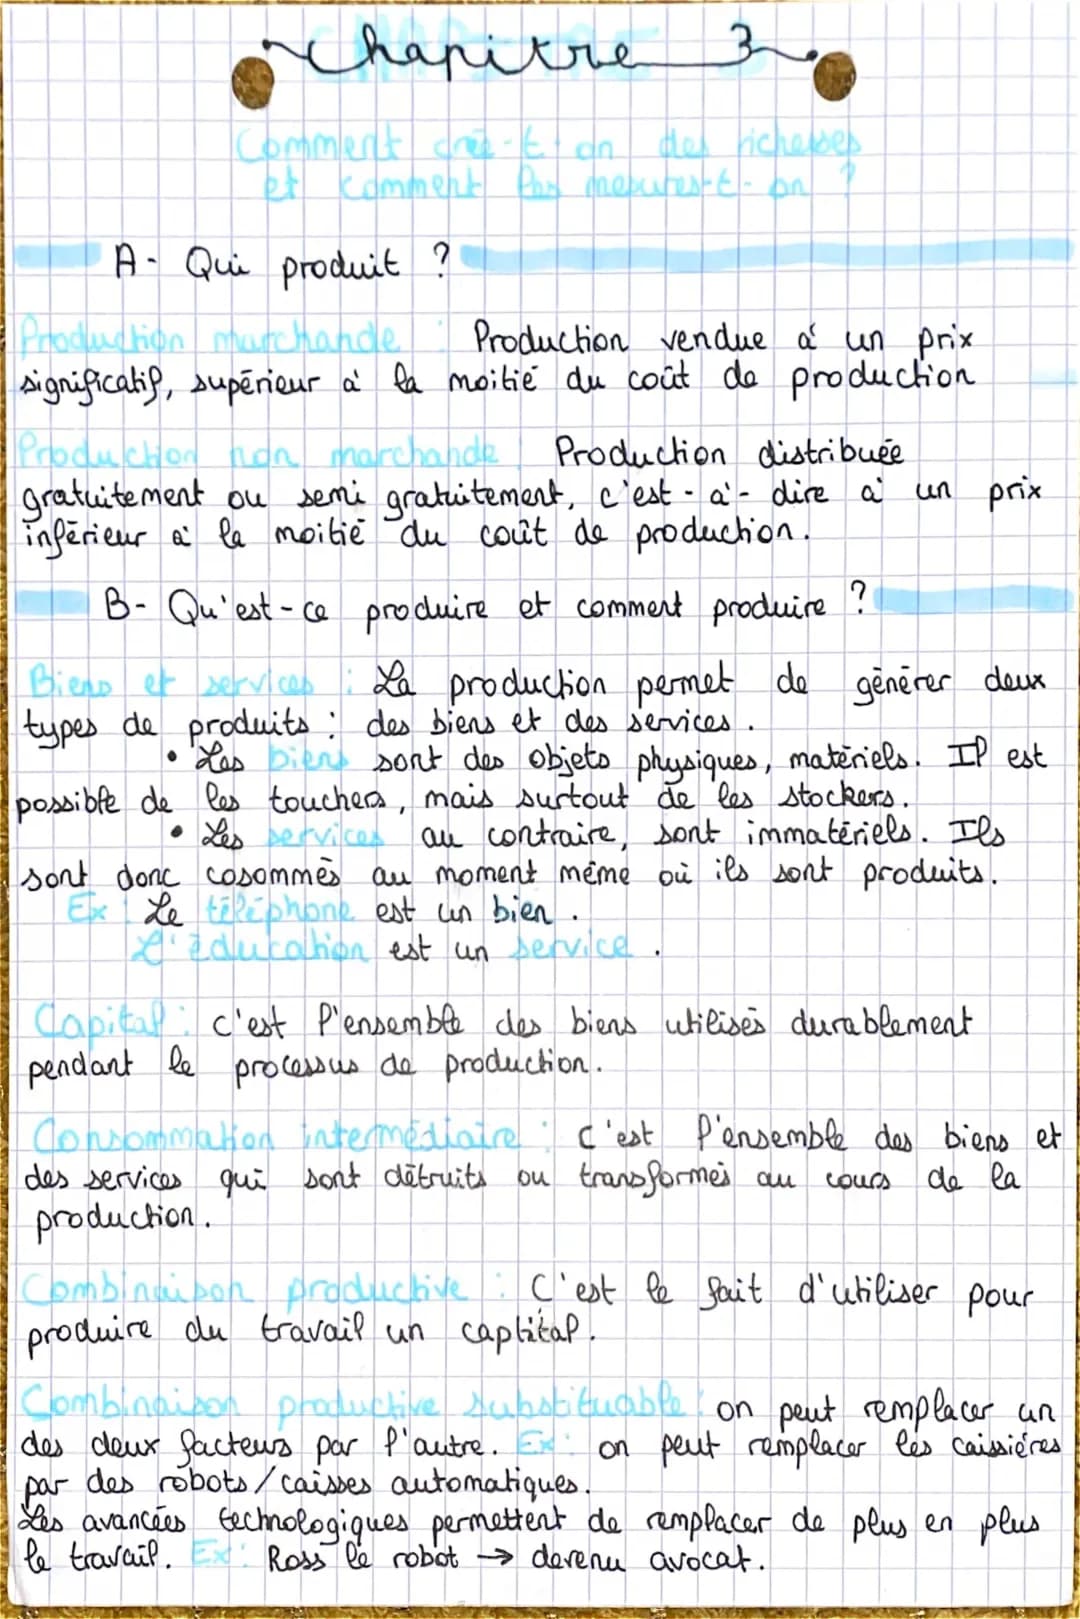 Chapitre 3
Comment crée-t-on des richesses
et comment les mesures-t-on ?
A- Qui produit ?
Production marchande : Production vendue à un prix
significatif, supérieur à la moitié du coût de production
Production non marchande : Production distribuée
gratuitement ou semi gratuitement, c'est-à-dire à un prix
inférieur à la moitié du coût de production.
B- Qu'est-ce produire et comment produire ?
Biens et services : La production permet de générer deux
types de produits : des biens et des services.
• Les biens sont des objets physiques, matériels. Il est
possible de les touchers, mais surtout de les stockers.
• Les services au contraire, sont immatériels. Ils
sont donc cosommés au moment même où ils sont produits.
Ex : Le téléphone est un bien.
L'éducation est un service.
Capital : c'est l'ensemble des biens utilisés durablement
pendant le processus de production.
Consommation intermédiaire : C'est l'ensemble des biens et
des services qui sont détruits ou transformés au cours de la
production.
Combinaison productive : C'est le fait d'utiliser pour
produire du travail un captital.
Combinaison productive substituable : on peut remplacer un
des deux facteurs par l'autre. Ex : on peut remplacer les caissières
par des robots/caisses automatiques.
Les avancées technologiques permettent de remplacer de plus en plus
le travail. Ex : Ross le robot → devenu avocat.